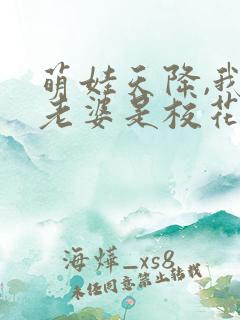 萌娃天降,我
老婆是校花
海烨_xs8
未经同意禁止转载